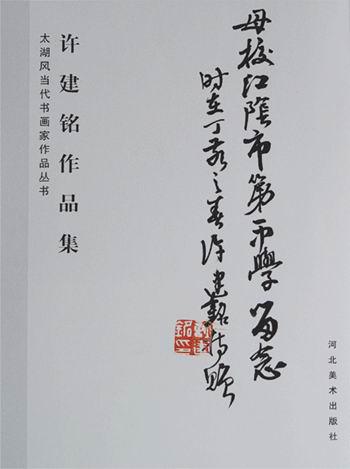 许建铭作品集
太湖风当代书画家作品丛书
母校江陰市第一中學留念
时在丁亥之春许建銘持赠
河北美术出版社